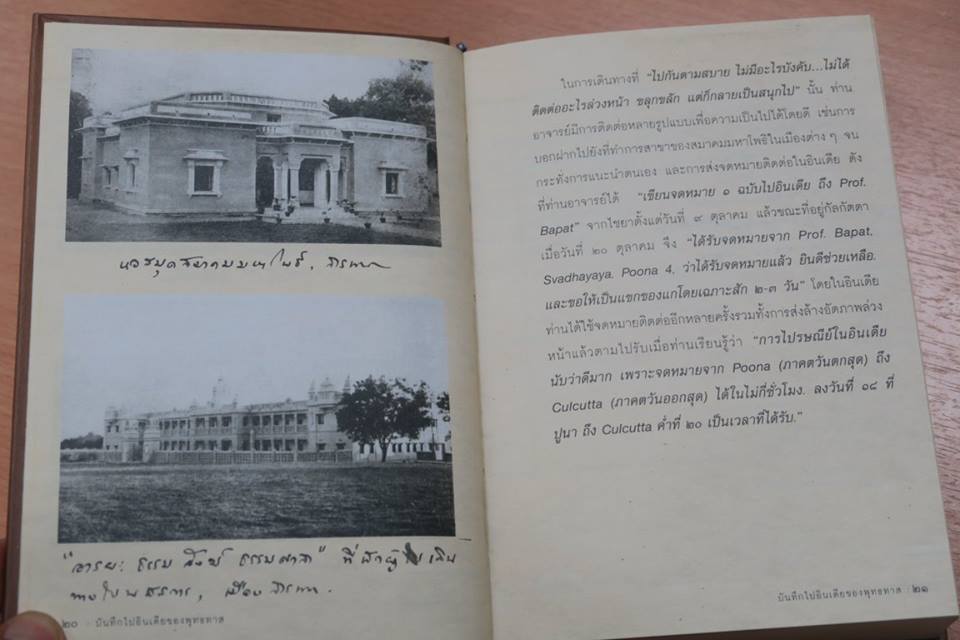 หอสมุดสมาคมมหาโพธิ์, สารนาถ
"อารยะ ธรรม สังฆ์ ธรรมศาลา" ที่พักผู้เดิน
ทางใน สารนาถ.
๒๐ : บันทึกไปอินเดียของพุทธทาส
ในการเดินทางที่ "ไปกันตามสบาย ไม่มีอะไรบังคับ...ไม่ได้
ติดต่ออะไรล่วงหน้า ขลุกขลัก แต่ก็กลายเป็นสนุกไป" นั้น ท่าน
อาจารย์มีการติดต่อหลายรูปแบบเพื่อความเป็นไปได้โดยดี เช่นการ
บอกฝากไปยังที่ทำการสาขาของสมาคมมหาโพธิในเมืองต่าง ๆ จน
กระทั่งการแนะนำตนเอง และการส่งจดหมายติดต่อในอินเดีย ดัง
ที่ท่านอาจารย์ได้ "เขียนจดหมาย ๑ ฉบับไปอินเดีย ถึง Prof.
Bapat" จากไชยาตั้งแต่วันที่ ๙ ตุลาคม แล้วขณะที่อยู่กัลกัตตา
เมื่อวันที่ ๒๐ ตุลาคม จึง "ได้รับจดหมายจาก Prof. Bapat,
Svadhayaya, Poona 4, ว่าได้รับจดหมายแล้ว ยินดีช่วยเหลือ.
และขอให้เป็นแขกของแกโดยเฉพาะสัก ๒-๓ วัน" โดยในอินเดีย
ท่านได้ใช้จดหมายติดต่ออีกหลายครั้งรวมทั้งการส่งล้างอัดภาพล่วง
หน้าแล้วตามไปรับเมื่อท่านเรียนรู้ว่า "การไปรษณีย์ในอินเดีย
นับว่าดีมาก เพราะจดหมายจาก Poona (ภาคตวันตกสุด) ถึง
Culcutta (ภาคตวันออกสุด) ได้ในไม่กี่ชั่วโมง. ลงวันที่ ๑๘ ที่
ปูนา ถึง Culcutta ค่ำที่ ๒๐ เป็นเวลาที่ได้รับ."
บันทึกไปอินเดียของพุทธทาส : ๒๑